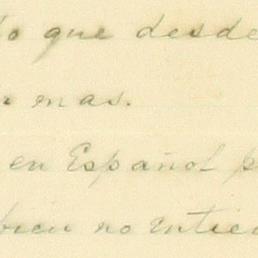 lo que desde
r mas.
en Español p
bien no entien